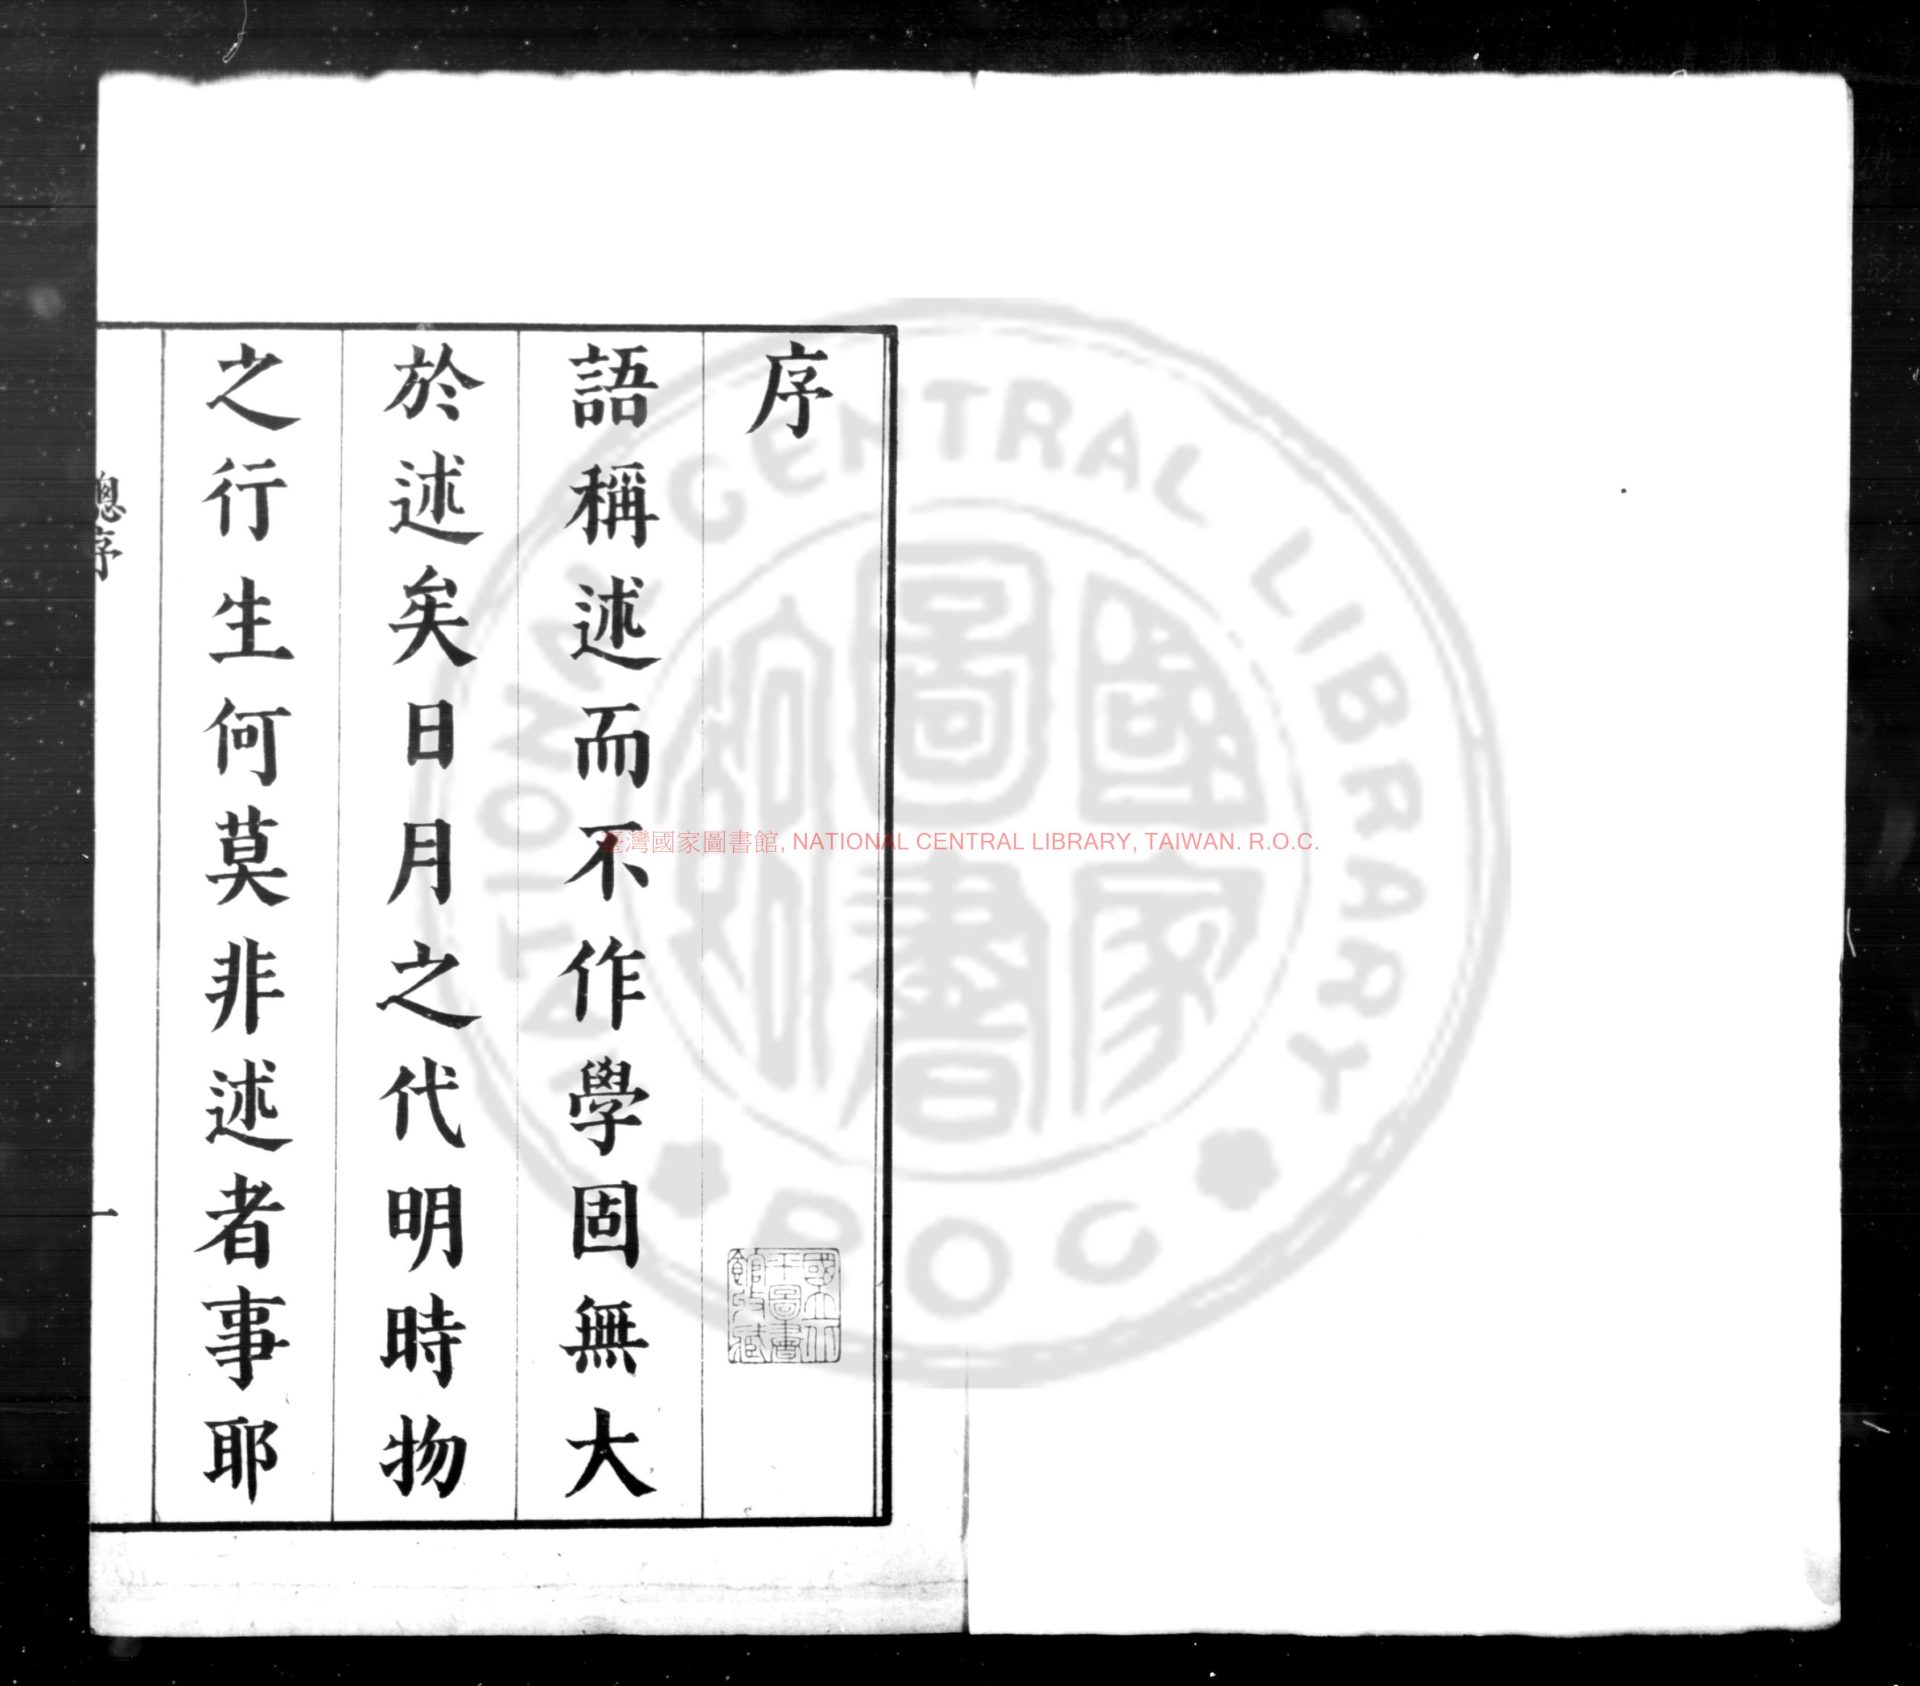 序
語稱述而不作學固無大
於述矣日月之代明時物
之行生何莫非述者事耶
總序
一
國立中
央圖書
館收藏
臺灣國家圖書館, NATIONAL CENTRAL LIBRARY, TAIWAN. R.O.C.
NATIONAL CENTRAL LIBRARY
ROC
國家圖書館